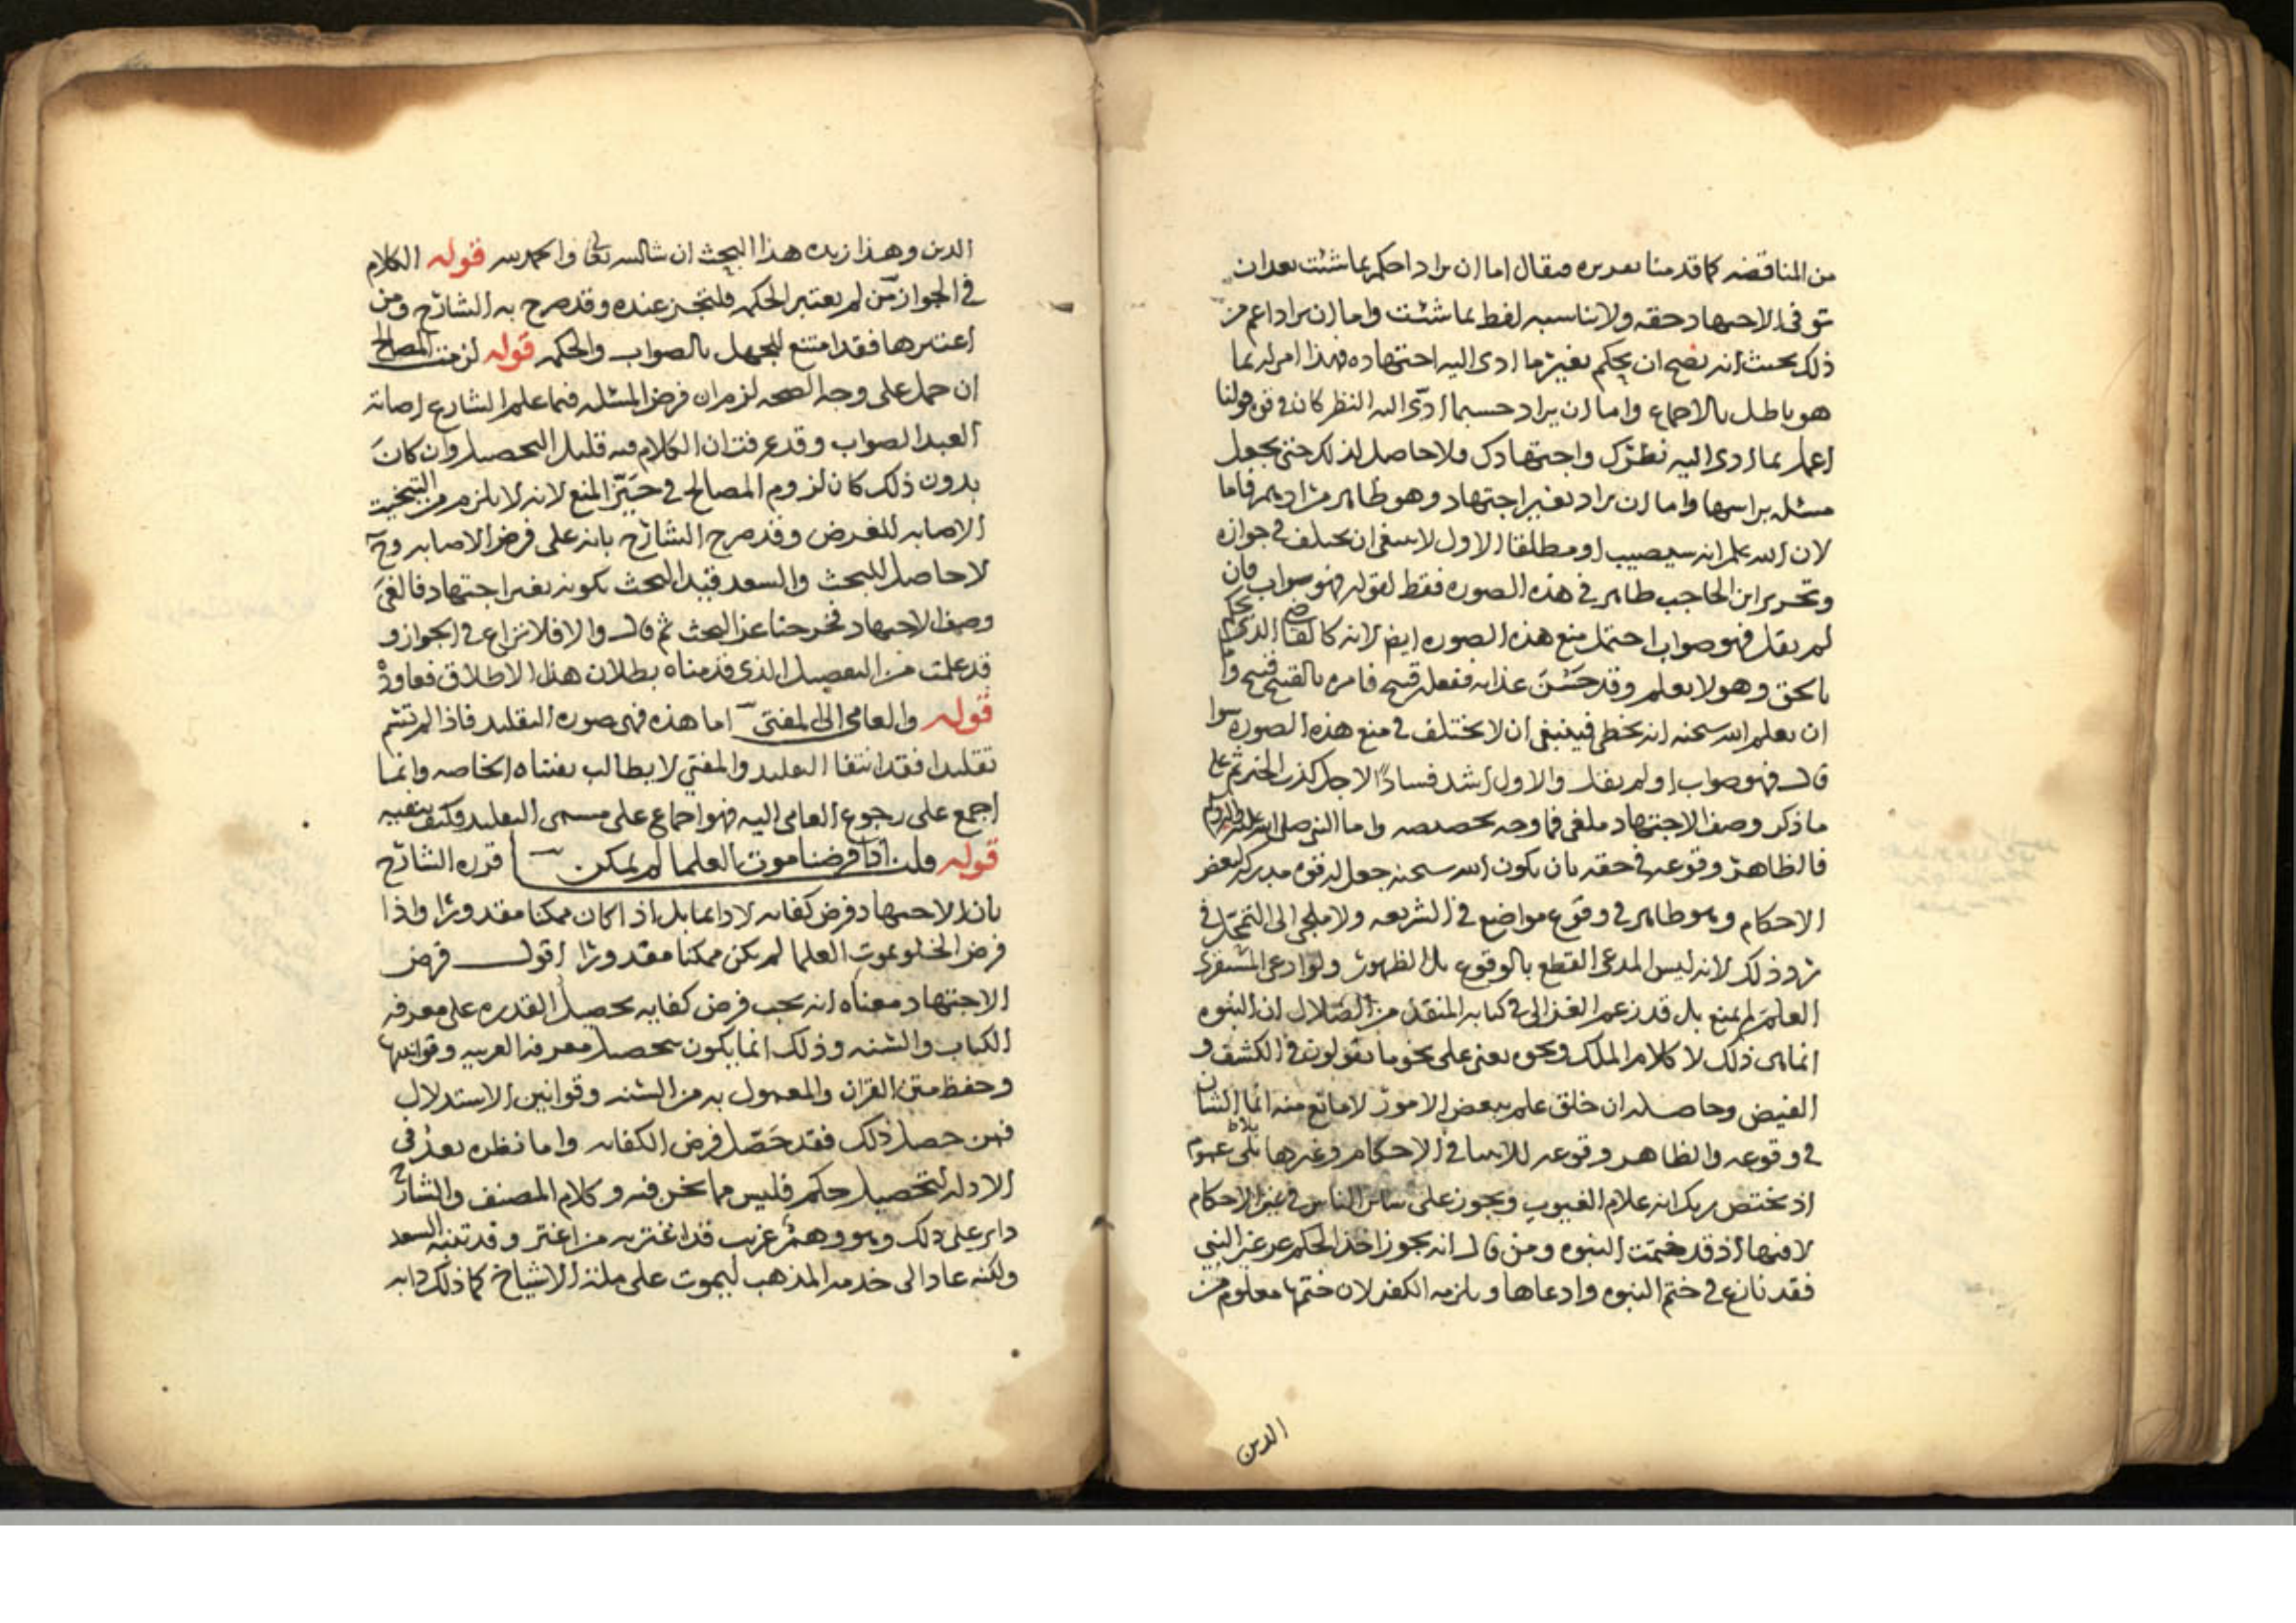 من المناقضه كما قدمنا تقديره فيقال اما ان يراد احكم بما شئت بعد ان
توفى الاجتهاد حقه ولا يناسبه لفظ بما شئت واما ان يراد اعم من
ذلك بحيث انه يصح ان يحكم بغير ما ادى اليه اجتهاده فهذا امر له بما
هو باطل بالاجماع واما ان يراد حسبما ادّى اليه النظر كان في قوة قولنا
اعمل بما ادى اليه نظرك واجتهادك فلا حاصل لذلك حتى يجعل
مسئله براسها واما ان يراد بغير اجتهاد وهو ظاهر مرادهم فاما
لان الله علم انه سيصيب او مطلقا الاول لا ينبغي ان يختلف في جوازه
وتحرير ابن الحاجب ظاهر في هذه الصوره فقط لقوله فهو صواب فان
لم يقل فهو صواب احتمل منع هذه الصوره ايض لانه كالقاضي الذي يحكم
بالحق وهو لا يعلم وقد حسن عذابه ففعله قبيح فامره بالقبيح قبيح واما
ان يعلم الله سبحنه انه يخطي فينبغي ان لا يختلف في منع هذه الصوره سوا
قال فهو صواب او لم يقل والاول اشد فسادًا لاجل كذب الخبر ثم على
ما ذكر وصف الاجتهاد ملغى فما وجه تخصيصه واما النبي صلى الله عليه واله وسلم
فالظاهر وقوعه في حقه بان يكون الله سبحنه جعل له قوه مدركه لبعض
الاحكام وهو ظاهر في وقوع مواضع في الشريعه ولا ملجي الى التمحّل في
رد ذلك لانه ليس المدعى القطع بالوقوع بل الظهور ولو ادعى المستقري
العلم لم يمنع بل قد زعم الغزالي في كتابه المنقذ من الضلال ان النبوه
انما هي ذلك لا كلام الملك ونحوه يعني على نحو ما يقولون في الكشف و
الفيض وحاصله ان خلق علم ببعض الامور لا مانع منه انما الشان
في وقوعه والظاهر وقوعه للانبيا في الاحكام وغيرها بلا عموم
اذ يختص ربك انه علام الغيوب ويجوز على سائر الناس في غير الاحكام
لا فيها اذ قد ختمت النبوه ومن قال انه يجوز اخذ الحكم عن غير النبي
فقد نازع في ختم النبوه وادعاها ويلزمه الكفر لان ختمها معلوم من
الدين
الدين وهذا زبده هذا البحث ان شا الله تعالى والحمد لله قوله الكلام
في الجواز من لم يعتبر الحكمه فلتجز عنده وقد صرح به الشارح ومن
اعتبرها فقد امتنع للجهل بالصواب والحكمه قوله لزمت المصالح
ان حمل على وجه الصحه لزم ان فرض المسئله فيما علم الشارع اصابة
العبد الصواب وقد عرفت ان الكلام فيه قليل التحصيل وان كان
بدون ذلك كان لزوم المصالح في حيّز المنع لانه لا يلزم من التبخيت
الاصابه للغرض وقد صرح الشارح بانه على فرض الاصابه وح
لا حاصل للبحث والسعد قيد البحث بكونه بغير اجتهاد فالغى
وصف الاجتهاد فخرجنا عن البحث ثم قال والا فلا نزاع في الجواز و
قد علمت من التفصيل الذي قدمناه بطلان هذا الاطلاق فعاوده
قوله والعامي الى المفتي اما هذه فهي صوره التقليد فاذا لم تتم
تقليدا فقد انتفا التقليد والمفتي لا يطالب بفتياه الخاصه وانما
اجمع على رجوع العامي اليه فهو اجماع على مسمى التقليد وكيف ينفيه
قوله قلت اذا فرضنا موت العلما لم يمكن قرره الشارح
بان الاجتهاد فرض كفايه لا دائما بل اذا كان ممكنا مقدورا واذا
فرض الخلو بموت العلما لم يكن ممكنا مقدورا اقول فرض
الاجتهاد معناه انه يجب فرض كفايه تحصيل القدره على معرفه
الكتاب والسنه وذلك انما يكون بتحصيل معرفه العربيه وقوانينها
وحفظ متن القران والمعمول به من السنه وقوانين الاستدلال
فمن حصل ذلك فقد حَصّل فرض الكفايه واما نظره بعد في
الادله لتحصيل حكم فليس مما نحن فيه وكلام المصنف والشارح
داير على ذلك وهو وهم غريب قد اغتر به من اغتر وقد تنبه السعد
ولكنه عاد الى خدمه المذهب ليموت على ملة الاشياخ كما ذلك دابه